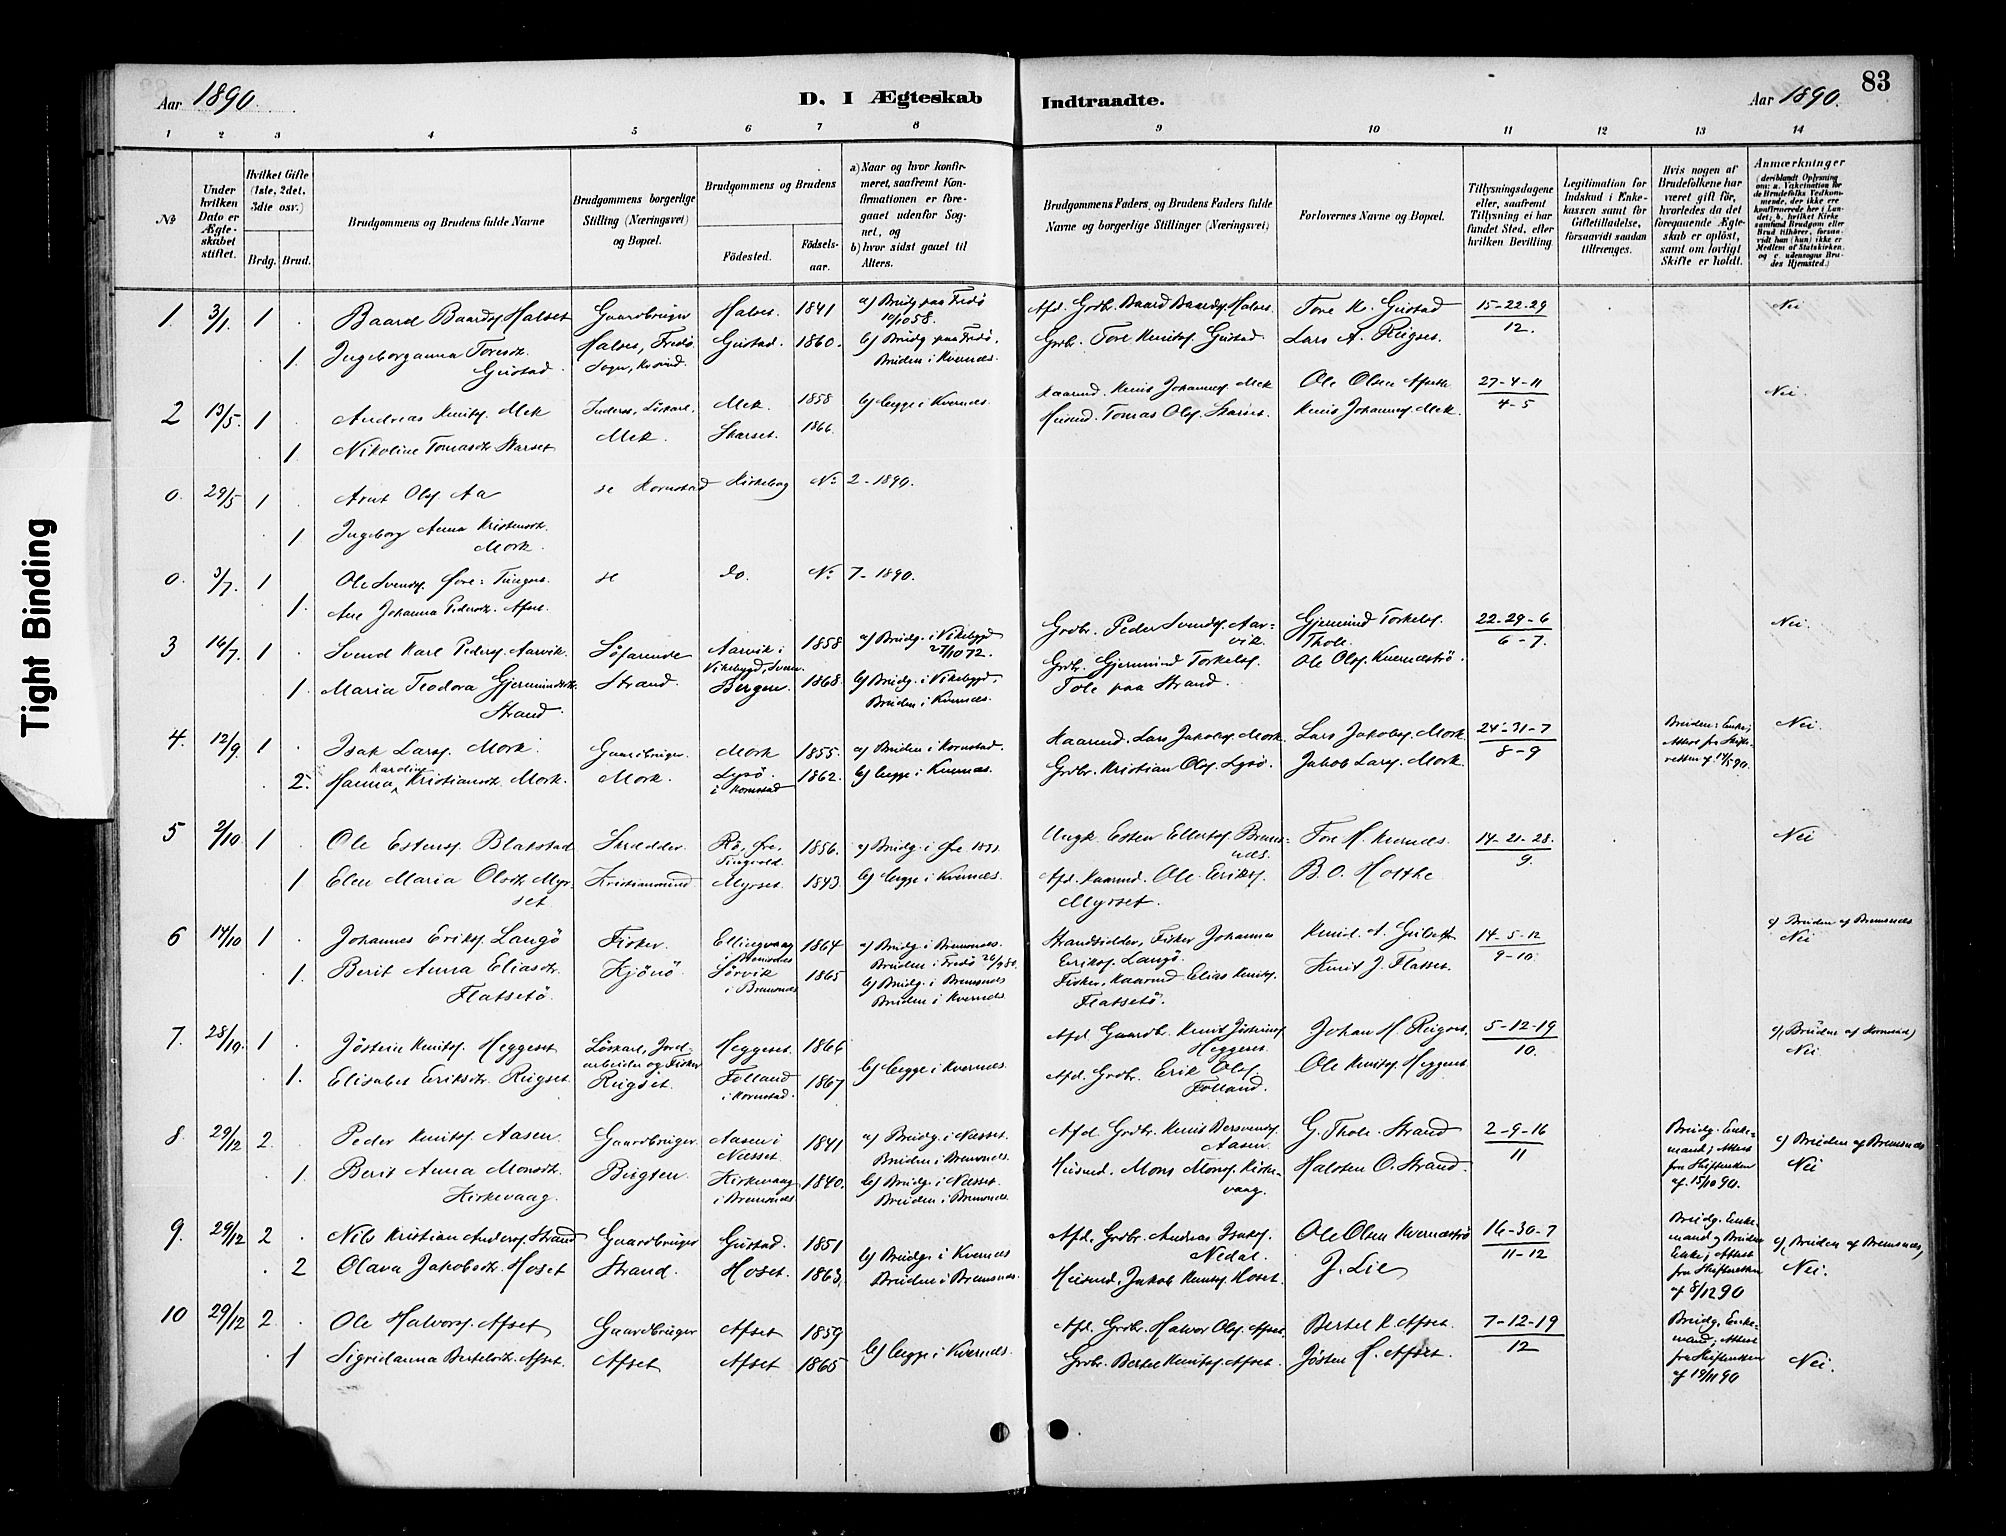 83
Aar 1890.
D. I Ægteskab Indtraadte.
Aar 1890.
1 2 3 4 5 6 7 8 9 10 11 12 13 14
№
Under hvilken Dato er Ægteskabet stiftet.
Hvilket Gifte (1ste, 2det, 3die osv.)
Brdg. Brud.
Brudgommens og Brudens fulde Navne
Brudgommens borgerlige Stilling (Næringsvei) og Bopæl.
Brudgommens og Brudens
Födested.
Födselsaar.
a) Naar og hvor konfirmeret, saafremt Konfirmationen er foregaaet udenfor Sognet, og
b) hvor sidst gaaet til Alters.
Brudgommens Faders og Brudens Faders fulde Navne og borgerlige Stillinger (Næringsvei)
Forlovernes Navne og Bopæl.
Tillysningsdagene eller, saafremt Tillysning ei har fundet Sted, efter hvilken Bevilling.
Legitimation for Indskud i Enkekassen samt for Giftetilladelse, forsaavidt saadan tiltrænges.
Hvis nogen af Brudefolkene har været gift för, hvorledes da det foregaaende Ægteskab er oplöst, samt om lovligt Skifte er holdt.
Anmærkninger
(deriblandt Oplysning om: a. Vakcination for de Brudefolks Vedkommende, der ikke ere konfirmerede her i Landet; b. hvilket Kirke samfund Brudgom eller Brud tilhører, forsaavidt han (hun) ikke er Medlem af Statskirken, og c. udensogns Brudes Hjemsted.)
1. 3/1. 1 . Baard Baards. Halset Gaardbruger Halses. 1841 a) Brudg. paa Fredö 10/10 58. Afd. Grdbr. Baard Baards. Halses. Tore K. Gustad 15-22-29 Nei
. 1. Ingeborganna Toresdt. Gustad. Halses, Fredö Sogn, Kr.sund. Gustad. 1860. b) Brudg. paa Fredö, Bruden i Kvernes. Grdbr. Tore Knuts. Gustad Lars A. Rugset. 12.
2 13/5. 1 . Andreas Knuts. Mek Inderst, Löskarl. Mek. 1858 b) begge i Kvernes. Kaarmd. Knut Johannes. Mek Ole Olsen Afseth 27-4-11 Nei.
1 Nikoline Tomasdt. Skarset Mek. Skarset. 1866. Husmd. Tomas Ols. Skarset. Knut Johannes. Mek. 4-5
0. 29/5 1 Arnt Ols. Aa se Kornstad Kirkebog No 2-1890.
. 1 Ingeborg Anna Kristensdt. Mork.
0. 3/7. 1 Ole Svends. Øre: Tingvs. se do. No 7-1890.
. 1. Ane Johanna Pedersdt. Afset.
3 16/7. 1 . Svend Karl Peders. Aarvik. Söfarende Aarvik i Vikebygd, Sveen 1858 a) Brudg. i Vikebygd 27/10 72. Grdbr. Peder Svends. Aarvik. Gjermund Torkels. Thole. 22-29-6 Nei.
. 1. Maria Teodora Gjermundsdt. Strand. Strand. Bergen. 1868. b) Brudg. i Vikebygd, Bruden i Kvernes. Grdbr. Gjermund Torkels. Tole paa Strand. Ole Ols. Kverneströ. 6-7.
4. 12/9 1 . Isak Lars. Mork. Gaardbruger. Mork 1855. a) Bruden i Kornstad. Kaarmd. Lars Jakobs. Mork. Lars Jakobs. Mork. 24-31-7 Bruden: Enke; Attest fra Skifteretten af 14/5 90. Nei.
. 2. Hanna Karoline Kristiansdt. Mork. Mork. Lysö. i Kornstad 1862. b) begge i Kvernes. Grdbr. Kristian Ols. Lysö. Jakob Lars. Mork. 8-9
5 2/10. 1 . Ole Estens. Blakstad Skrædder. Rö, Øre, Tingvold. 1856. a) Brudg. i Øre Ungk. Esten Ellefs. Bremsnes. Tore H. Kvernes. 14-21-28. Nei
. 1 Elen Maria Olsdt. Myrset. Kristiansund Myrset. 1843. b) begge i Kvernes. Afd. Kaarmd. Ole Eriks. Myrset. B. O. Holthe 9.
6 14/10 1 . Johannes Eriks. Langö Fisker. Ellingvaag i Bremsnes 1864 a) Brudg. i Bremsnes. Bruden i Fredö 26/9 80. Strandsidder, Fisker Johannes Eriks. Langö. Knud. A. 14-5-12 c) Bruden af Bremsnes Nei
. 1. Berit Anna Eliasdt. Flatsetö. Kjönö. Sörvik i Bremsnes 1865 b) Brudg. i Bremsnes Bruden i Kvernes Fisker, Kaarmd. Elias Knuts. Flatsetö. Knut J. Flatset. 9-10.
7. 28/10. 1 . Jöstein Knuts. Heggeset Löskarl, Jordarbeider og Fisker Heggeset. 1866 Afd. Gaardb. Knut Jösteins. Heggeset. Johan H. Rugset. 5-12-19 c) (Bruden af Kornstad) Nei
. 1. Elisabet Eriksdt. Rugset. Rugset. Folland i Kornstad. 1867 b) begge i Kvernes. Afd. Grdbr. Erik Ols. Folland. Ole Knuts. Heggeset. 10.
8. 29/12 2. . Peder Knuts. Aasen. Gaardbruger. Aasen i Næsset 1841 a) Brudg. i Næsset. Bruden i Bremsnes. Afd. Grdbr. Knut Aasen. G. Thole. Strand 2-9-16 Brudg. Enkemand; Attest fra Skifteretten af 15/10 90. c) Bruden af Bremsnes Nei
. 1. Berit Anna Monsdt. Kirkevaag. Bugten. Kirkevaag i Bremsnes. 1840. b) Brudg. i Næsset. Bruden i Bremsnes. Husmd. Mons Mons. Kirkevaag. Halsten O. Strand. 11
9. 29/12 2. . Nils Kristian Anders. Strand Gaardbruger Gustad. 1851 b) Brudg. i Kvernes Afd. Grdbr. Andreas Isaks. Nedal. Ole Olsen Kverneströ 16-30-7 Brudg. Enkemand, Bruden Enke; Attest fra Skifteretten af 8/12 90 c) (Bruden af Bremsnes) Nei.
. 2 Olava Jakobsdt. Hoset Strand. Hoset. 1863. Bruden i Bremsnes. Husmd. Jakob Knuts. Hoset. J. Lie 11-12
10 29/12 2. . Ole Halvors. Afset Gaardbruger Afset 1859 Afd. Grdbr. Halvor Ols. Afset Bertel K. Afset. 7-12-19 Brudg. Enkemand; Attest fra Skifteretten af 19/11 90
. 1 Sigridanna Bertelsdt. Afset. Afset Afset 1865 b) begge i Kvernes. Grdbr. Bertel Knuts. Afset. Jösten H. Afset. 12 Nei.
Tight Binding